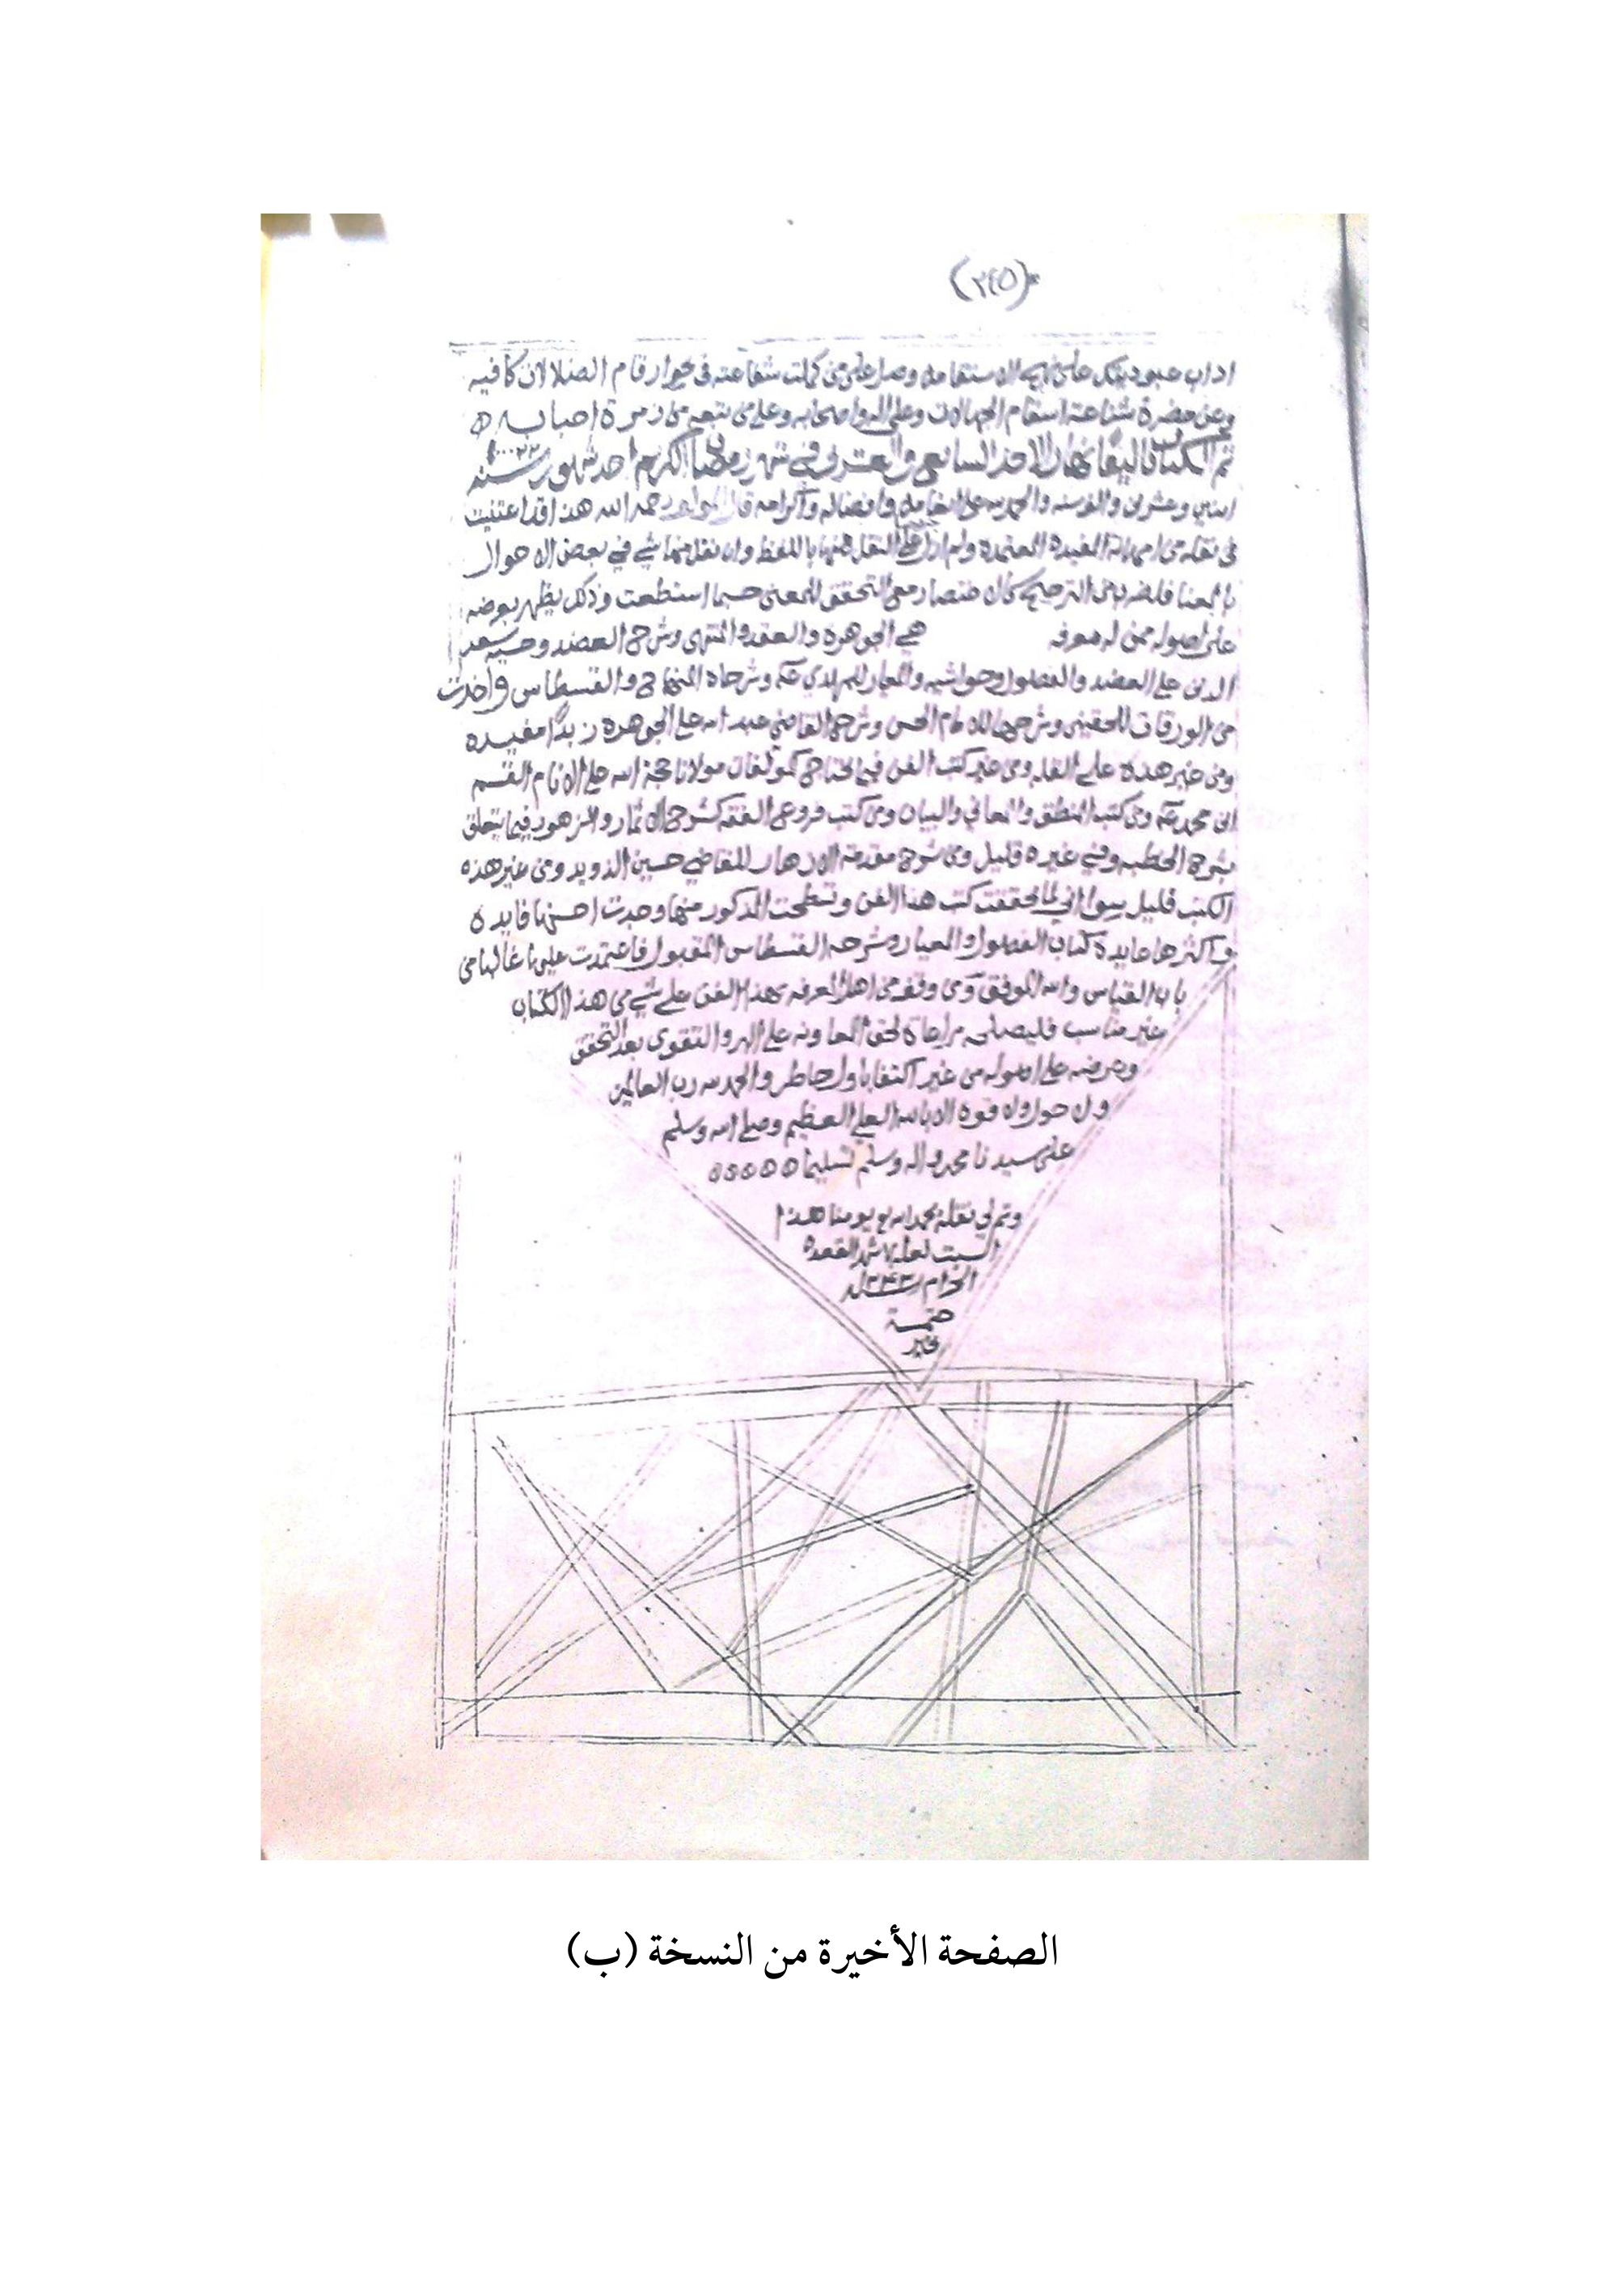 (٢٤٥)
اداب عبوديتك على نهج الاستقامه وصل على من كملت شفاعته في
وعن حضرة شناعة اسقام الجهالات وعلى اله واصحابه وعلى من تبعه من زمرة احبابه
تم الكتاب نهار الاحد السابع والعشرين في شهر رمضان الكريم احد شهور سنة ١٠٢٢
اثنين وعشرين والف سنه والحمد لله على انعامه وافضاله واكرامه قال المولف رحمه الله هذا وقد اعتنيت
في نقله من امهاته المفيدة المعتمدة ولم ازل على النقل منها باللفظ وان نقل منها شي في بعض الاحوال
بالمعنا فلضرب من الترجيح كان اختصار مع التحقق للمعنى حسبما استطعت وذلك يظهر بعرضه
على اصوله ممن له معرفه هي الجوهرة والعقد والمنتهى وشرح العضد وحاشيه سعد
الدين على العضد والفصول وحواشيه والمعيار للمهدي عم وشرحاه المنهاج والقسطاس واخذت
من الورقات للجويني وشرحها للامام الحسن وشرح القاضي عبد الله على الجوهرة زبدا مفيده
ومن غير هذه على القله ومن غير كتب الفن فيما يحتاج كمولفات مولانا حجة الله على الانام القسم
ابن محمد عم ومن كتب المنطق والمعاني والبيان ومن كتب فروع الفقه كشرح الاثمار والزهور فيما يتعلق
بشرح الخطبه وفي غيره قليل ومن شرح مقدمة الازهار للقاضي حسين الذويد ومن غير هذه
الكتب قليل سوا اني لما تحققت كتب هذا الفن المذكور منها وجدت احسنها فايدة
واكثرها عايدة كتاب الفصول والمعيار وشرحه القسطاس المقبول فاعتمدت عليها غالبا من
باب القياس والله الموفق ومن وقف من اهل المعرفه بهذا الفن على شي من هذا الكتاب
غير مناسب فليصلحه مراعاة لحق المعاونه على البر والتقوى بعد التحقق
وعرضه على اصوله من غير اكتفا باول خاطر والحمد لله رب العالمين
ولا حول ولا قوة الا بالله العلي العظيم وصلى الله وسلم
على سيدنا محمد واله وسلم تسليما
وتم لي نقله بحمد الله يومنا هذا
السبت شهر القعدة
الحرام
ختمه
بخير
الصفحة الأخيرة من النسخة (ب)